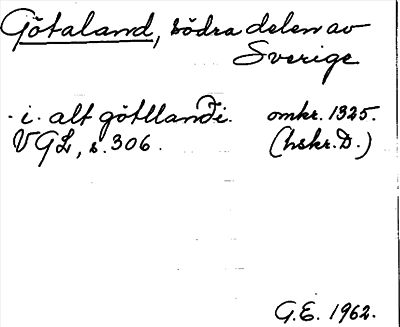 Götaland, södra delen av
Sverige
·i· alt götllandi. omkr. 1325.
VGL, s. 306. (hskr. D.)
G.E. 1962.